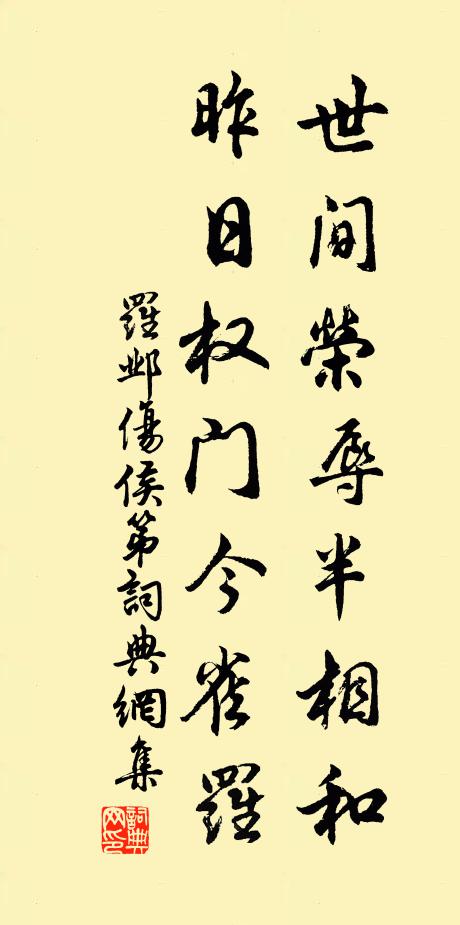 世间榮辱半相和
昨日权门今雀羅
羅邺傷侯第詞典網集
詞典网印